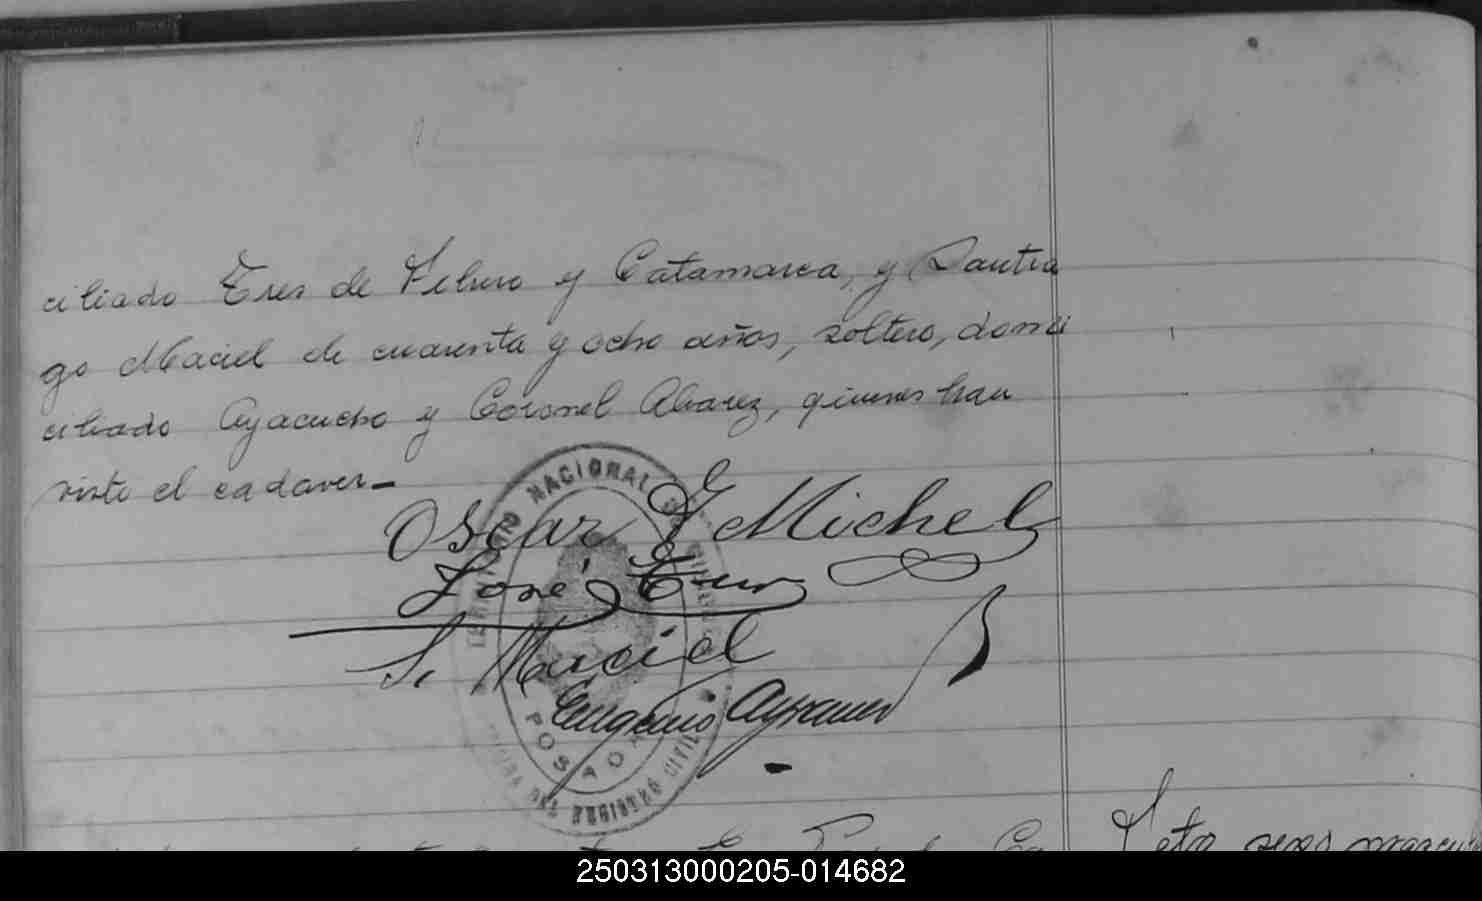 ciliado Tres de Febrero y Catamarca, y Santia
go Maciel de cuarenta y ocho años, soltero, domi
ciliado Ayacucho y Coronel Alvarez, quienes han
visto el cadaver.-
Oscar E Michel
José
S. Maciel
Eugenio
NACIONAL
POSADAS
Feto sexo
250313000205-014682